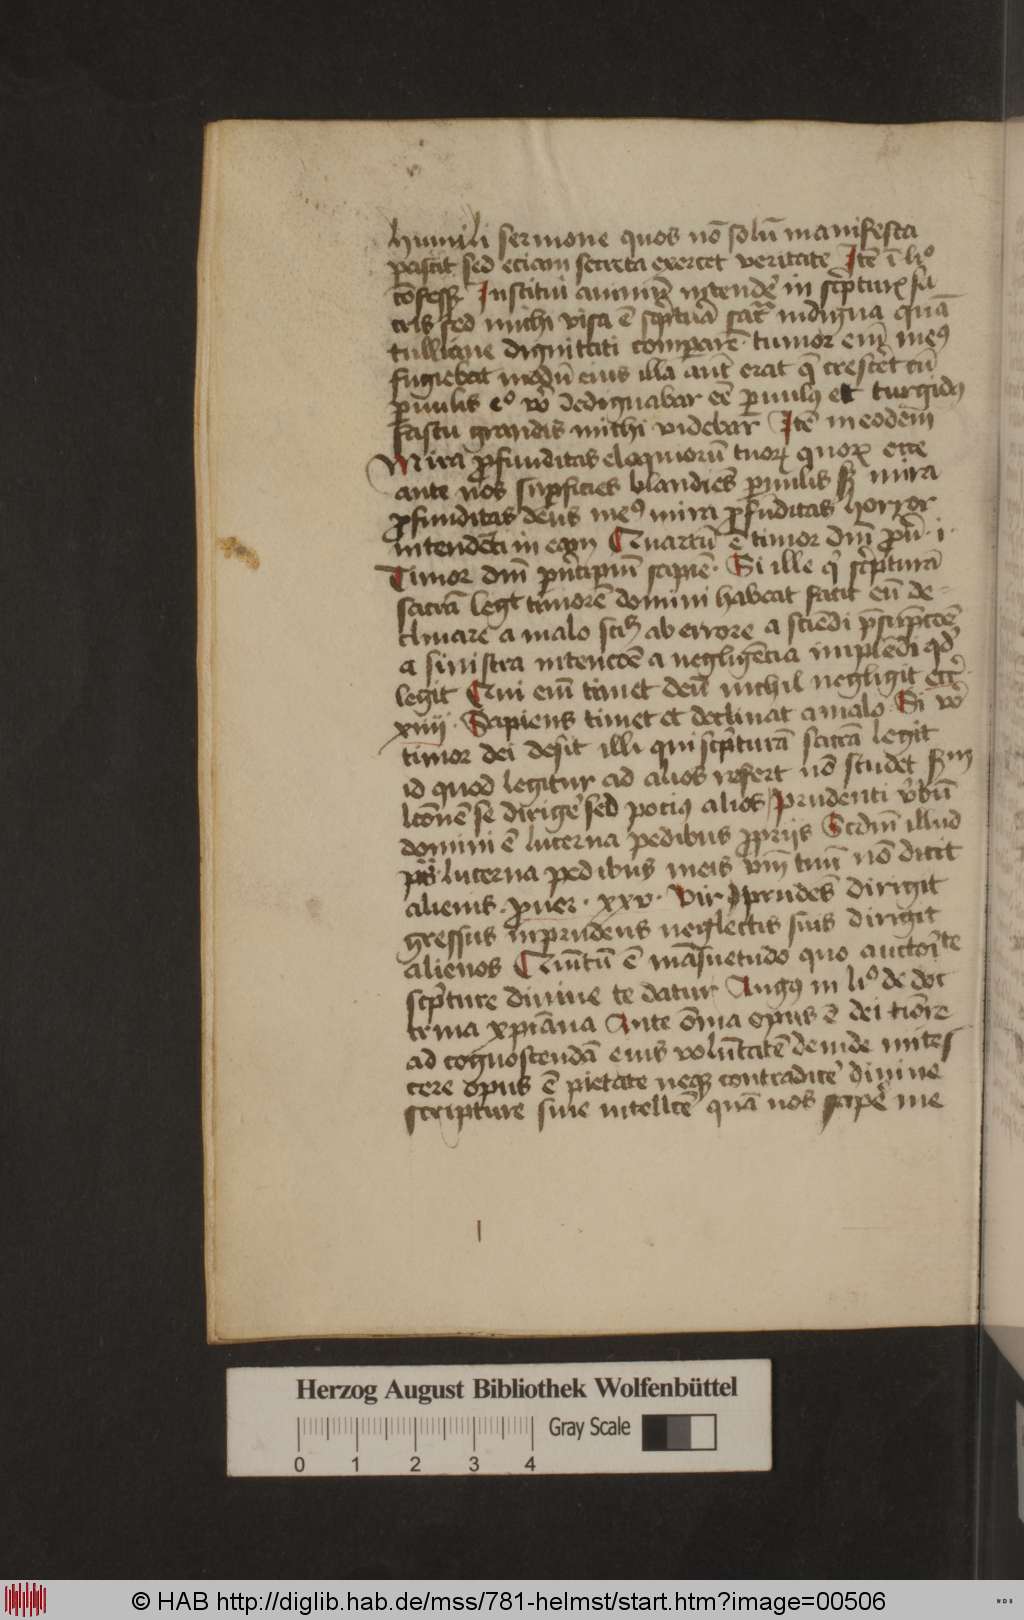 humili sermone quos nō solū manifesta
pascit sed eciam secreta exercet veritate Itē ī liº
cōfess Institui animū intendē in scͥpturꝭ sa
cris sed michi visa ē scͥptuā indigna quā
tulliane dignitati comparē tumor eim̄ meꝰ
fugiebat modū eius illa aut̄ erat q̄ crescēt cū
ꝑuulis eº vº dedignabar eē ꝑuulꝰ et turgidꝰ
fastu grandis michi videbar Itē in eodem
Mira ꝓfunditas eloquiorū tuoꝝ quoꝝ ecce
ante nos suꝑficies blandiēs ꝑuulis sꝫ mira
ꝓfunditas deus meꝰ mira ꝓfūditas horror
intendēti in eam Quartū ē timor dm̄ ꝓuͥ · i ·
Timor dm̄ pͥncipiū sapiē · Si ille qͥ scͥpturā
sacrā legit timorē domini habeat facit eū de-
clinare a malo scꝫ ab errore a sciēdi p̄sūpcōe
a sinistra intencōe a negligēcia implēdi qd̓
legit Qui eim̄ timet deū nichil negligit
xiiij · Sapiens timet et declinat a malo Si vº
timor dei desit illi qui scͥpturā sacrā legit
id quod legitur ad alios refert nō studet sꝫm
lcōnē se dirigē sed pociꝰ alios prudenti v̓bū
domini ē lucerna pedibus ꝓpriis Scdm̄ illud
pͥs lucerna pedibus meis v̓m tuū nō dicit
alienis · ꝓuer · xxv · Vir prudēs dirigit
gressus inprudens neglectis suis dirigit
alienos Quītū ē māsuetudo quo auctorͥte
scͥpture diuine te datur Augꝰ in liº de doc
trina xpiāna Ante ōnia opus ē dei tiōre
ad cognoscendā eius volūtatē deinde mites
cere opus ē pietate neqꝫ contradicē diuine
scripture siue intellcē quā nos sapē me
Herzog August Bibliothek Wolfenbüttel
Gray Scale
0 1 2 3 4
© HAB http://diglib.hab.de/mss/781-helmst/start.htm?image=00506